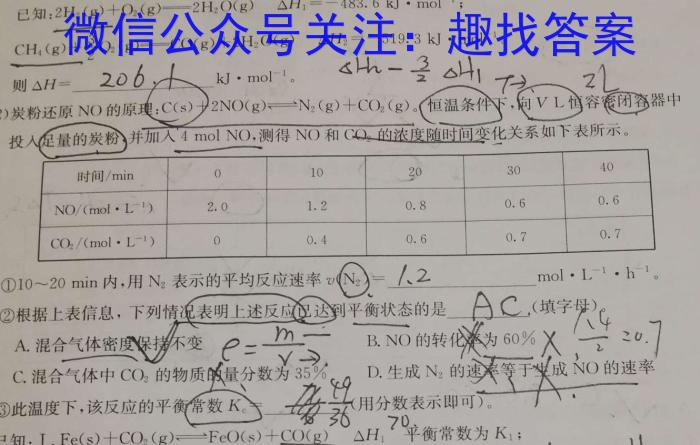 已知:2H₂(g)+O₂(g)══2H₂O(g) ΔH₁=-483.6 kJ·mol⁻¹;
CH₄(g)
微信公众号关注：趣找答案
则 ΔH= 206.1 kJ·mol⁻¹。 ΔH₂ - 3/2 ΔH₁
2L
)炭粉还原 NO 的原理:C(s)+2NO(g)⇌N₂(g)+CO₂(g)。恒温条件下,向 V L 恒容密闭容器中
投入足量的炭粉,并加入 4 mol NO,测得 NO 和 CO₂ 的浓度随时间变化关系如下表所示。
时间/min 0 10 20 30 40
NO/(mol·L⁻¹) 2.0 1.2 0.8 0.6 0.6
CO₂/(mol·L⁻¹) 0 0.4 0.6 0.7 0.7
①10~20 min 内,用 N₂ 表示的平均反应速率 v(N₂)= 1.2 mol·L⁻¹·h⁻¹。
②根据上表信息,下列情况表明上述反应已达到平衡状态的是 AC (填字母)。
A. 混合气体密度保持不变 ρ=m/V B. NO 的转化率为 60% 1.4/2=0.7
C. 混合气体中 CO₂ 的物质的量分数为 35% D. 生成 N₂ 的速率等于生成 NO 的速率
③此温度下,该反应的平衡常数 Kc= 49/36 (用分数表示即可)。
已知:Ⅰ.Fe(s)+CO₂(g)⇌FeO(s)+CO(g) ΔH₁ 平衡常数为 K₁;